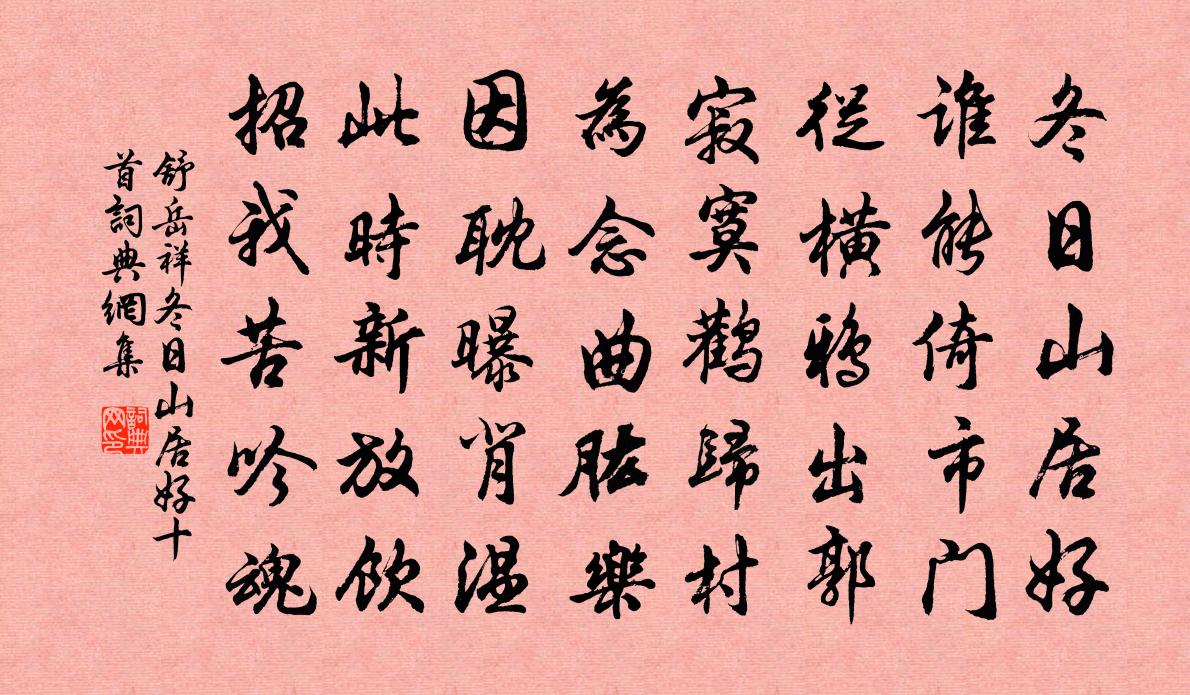 冬日山居好
谁能倚市门
從橫鴉出郭
寂寞鶴歸村
為念曲肱樂
因耽曝背温
此時新放飲
招我苦吟魂
舒岳祥冬日山居好十
首詞典網集
詞典网印